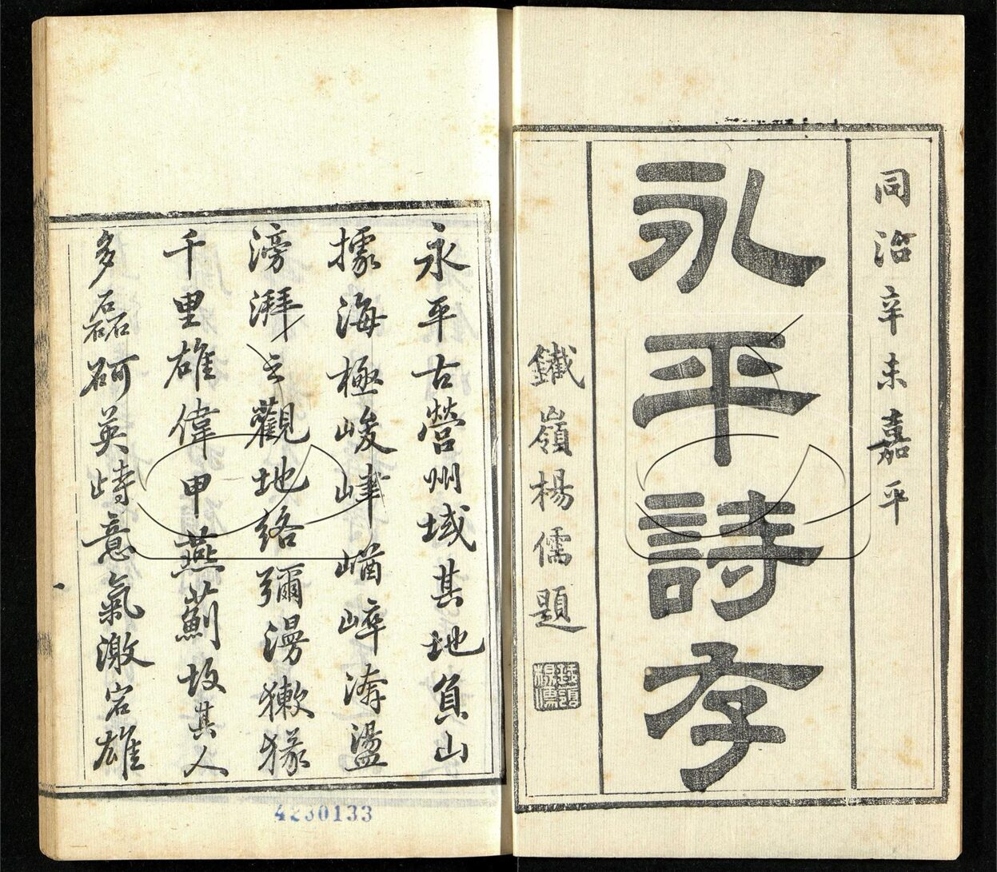 同治辛未嘉平
永平詩存
鐵嶺楊儒題
鐵嶺楊儒
永平古營州域其地負山
據海極峻峍崷崒濤盪
滂湃之觀地絡彌漫
千里雄偉甲燕薊故其人
多磊砢英峙意氣激宕雄
4230133